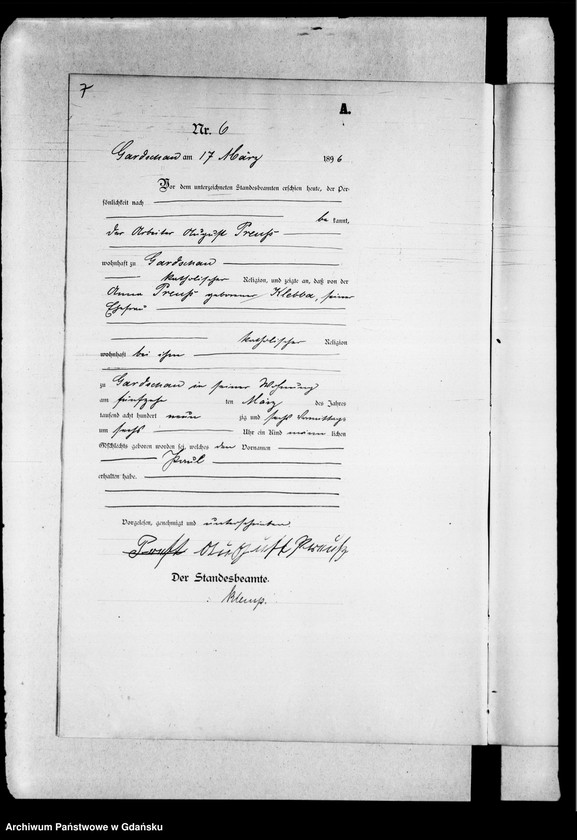 7
A.
Nr. 6
Gardschau am 17 März 1896
Vor dem unterzeichneten Standesbeamten erschien heute, der Per-
sönlichkeit nach
be kannt,
der Arbeiter August Preuß
wohnhaft zu Gardschau
katholischer Religion, und zeigte an, daß von der
Anna Preuß geborene Klebba, seiner
Ehefrau
katholischer Religion
wohnhaft bei ihm
zu Gardschau in seiner Wohnung
am fünfzehn ten März des Jahres
tausend acht hundert neun zig und sechs Vormittags
um sechs Uhr ein Kind männ lichen
Geschlechts geboren worden sei, welches den Vornamen
Paul
erhalten habe.
Vorgelesen, genehmigt und unterschrieben
August Preuß
Der Standesbeamte.
Klemp.
Archiwum Państwowe w Gdańsku